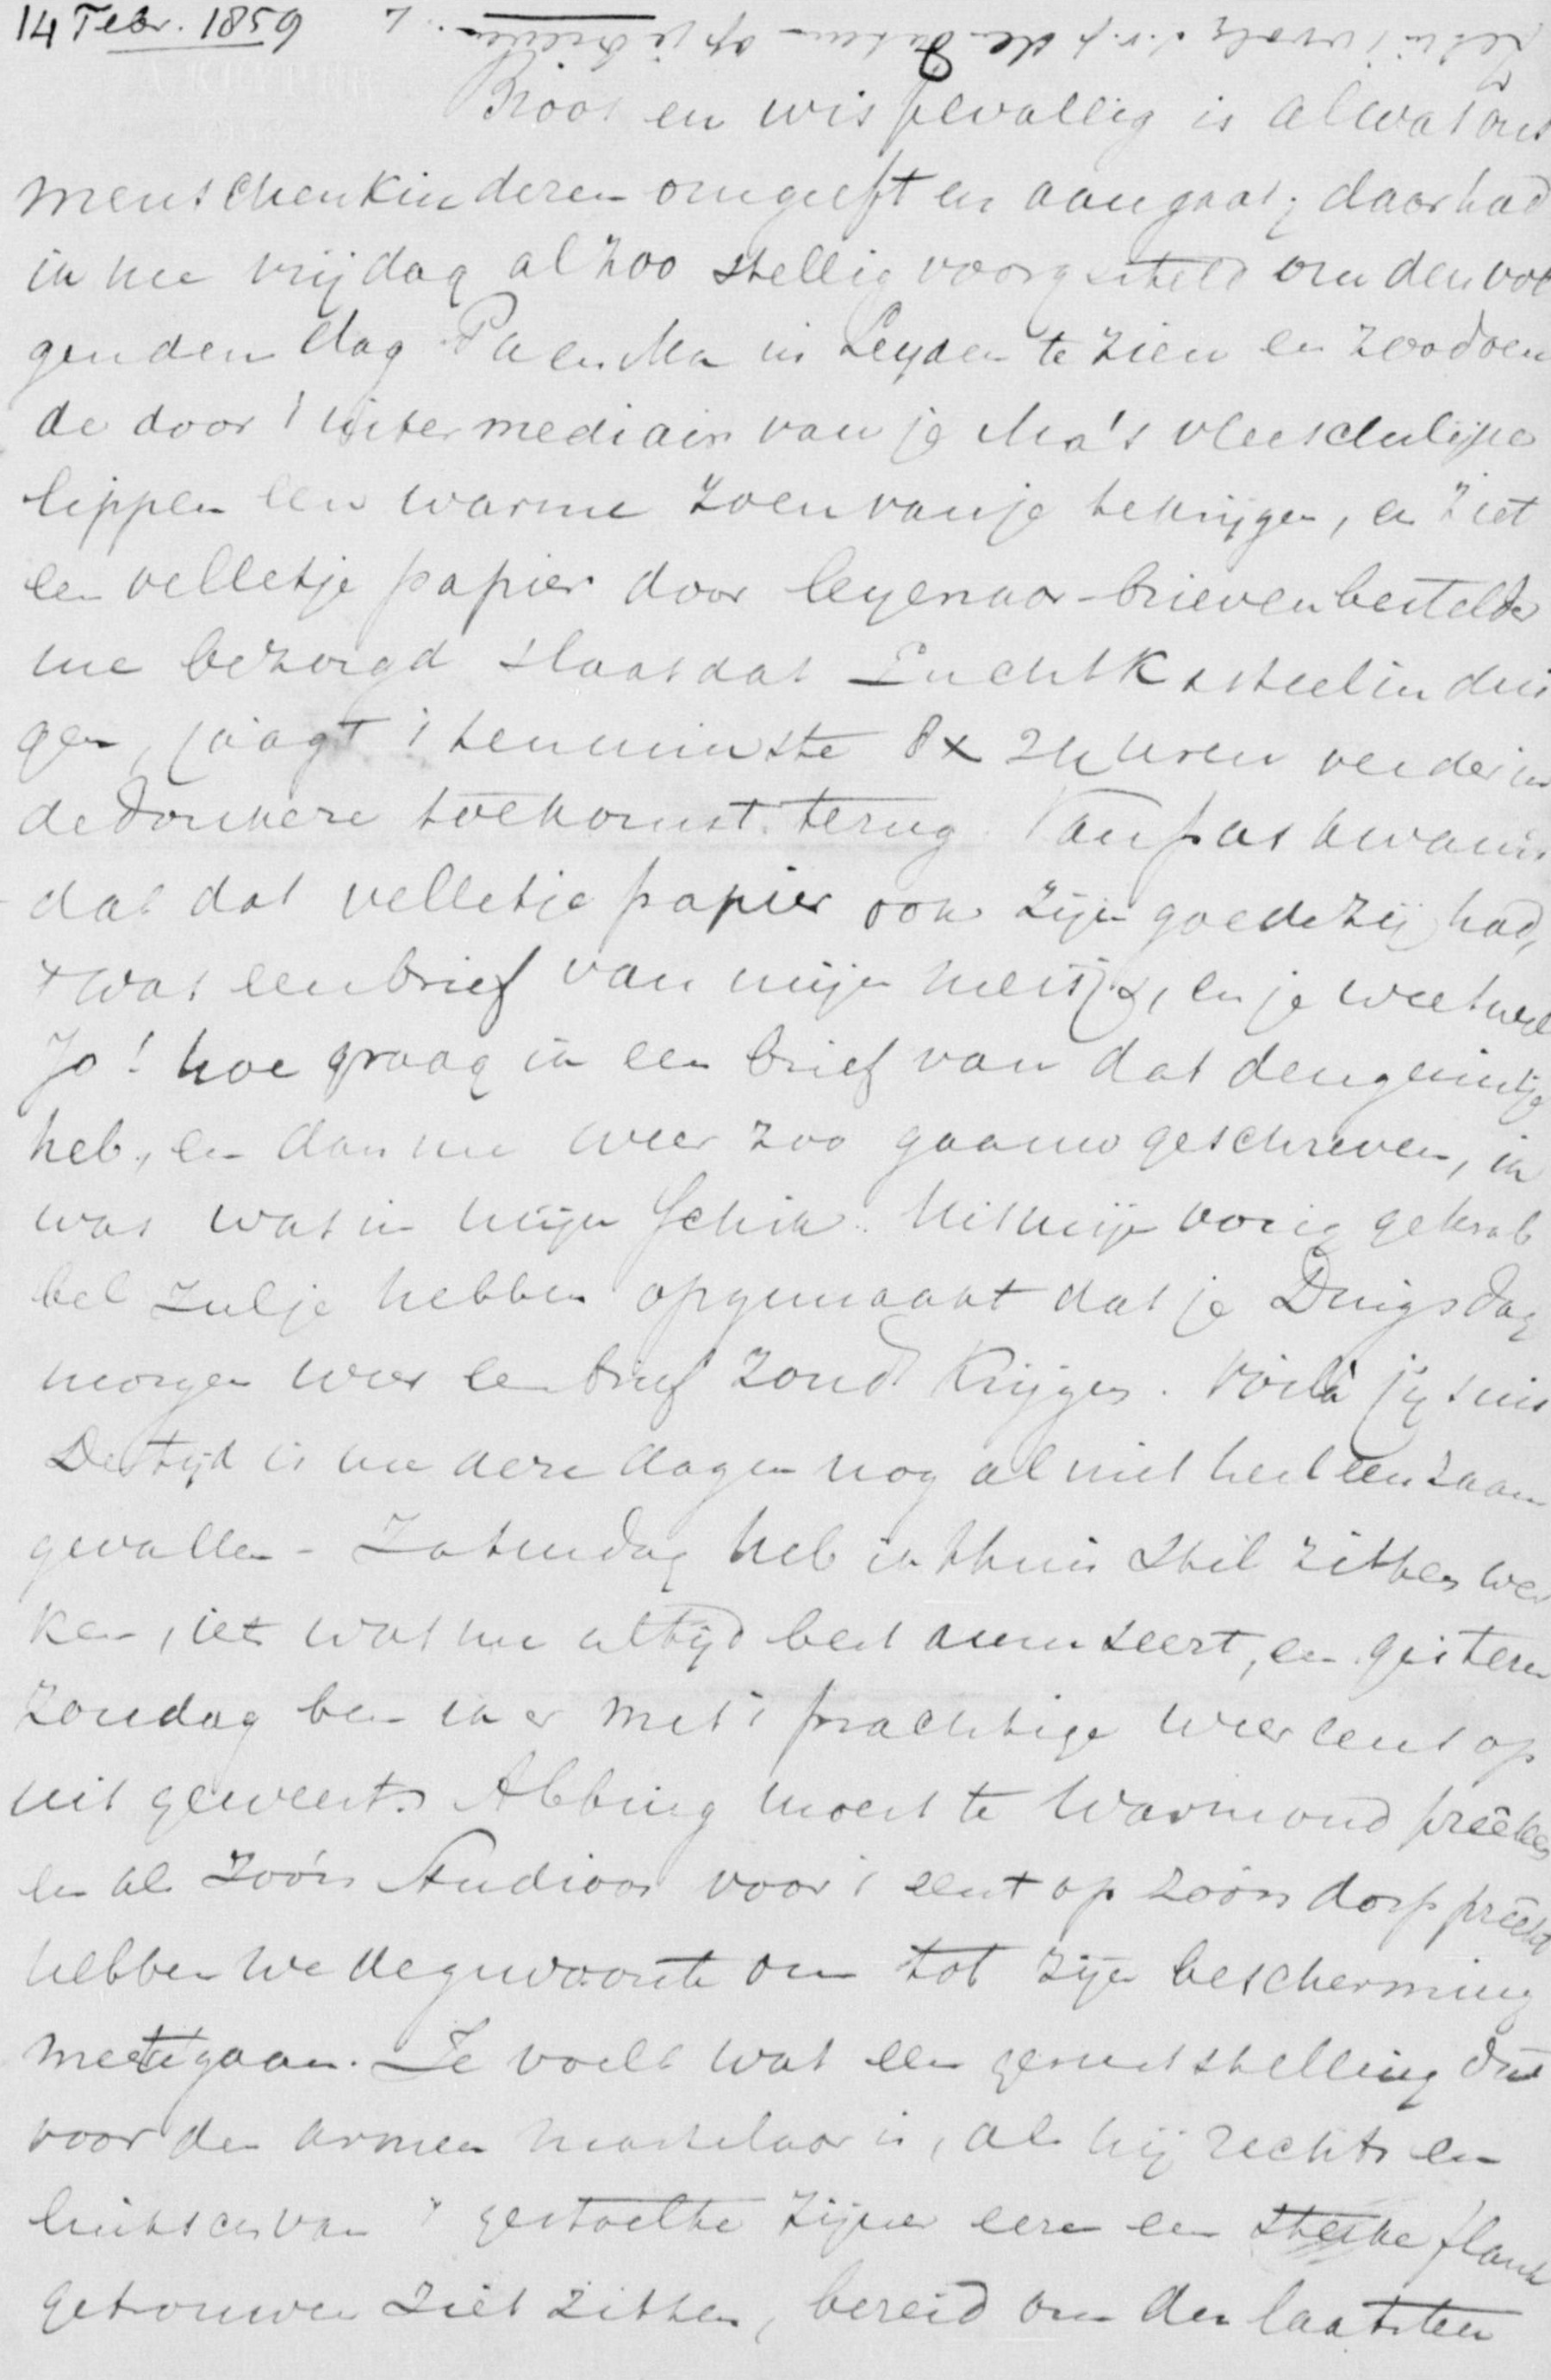 14 Febr. 1859
Broos en wispelvallig is alwat ons
menschenkinderen omgeeft en aangaat; daar had
ik me vrijdag al zoo stellig voorgesteld om den vol
genden dag Pa en Ma in Leyden te zien en zoodoen
de door 't intermediair van je Ma's vleeschelijke
lippen een warme zoen van je te krijgen, en ziet
een velletje papier door brievenbesteller
me bezorgd slaat dat luchtkasteel in dui
gen, jaagt 't tenminste 8 x 24 uren verder in
de donkere toekomst terug. Van pas kwam 't
dat dat velletje papier ook zijn goede zij had,
't was een brief van mijn meisje, en je weet wel
Jo! hoe graag ik een brief van dat deugnietje
heb, en dan nu weer zoo gaauw geschreven, ik
was wat in mijn schik. Uit mijn vorig gekrab
bel zulje hebben opgemaakt dat je Dingsdag
morgen weer een brief zoudt krijgen. Voilà j'y suis
De tijd is me deze dagen nog al niet heel eenzaam
gevallen - Zaturdag heb ik thuis stil zitten wer
ken, iets wat me altijd best amuseert, en gisteren
zondag ben ik er met 't prachtige weer eens op
uit geweest. Abbing moest te Warmond prêeken
en als zoo'n Studioos voor 't eerst op zoo'n dorp prêekt
hebben we de gewoonte om tot zijn bescherming
meetegaan. Je voelt wat een geruststelling dat
voor den armen is, als hij rechts en
links van 't gestoelte zijner eere een sterke flank
getrouwen ziet zitten, bereid om den laatsten